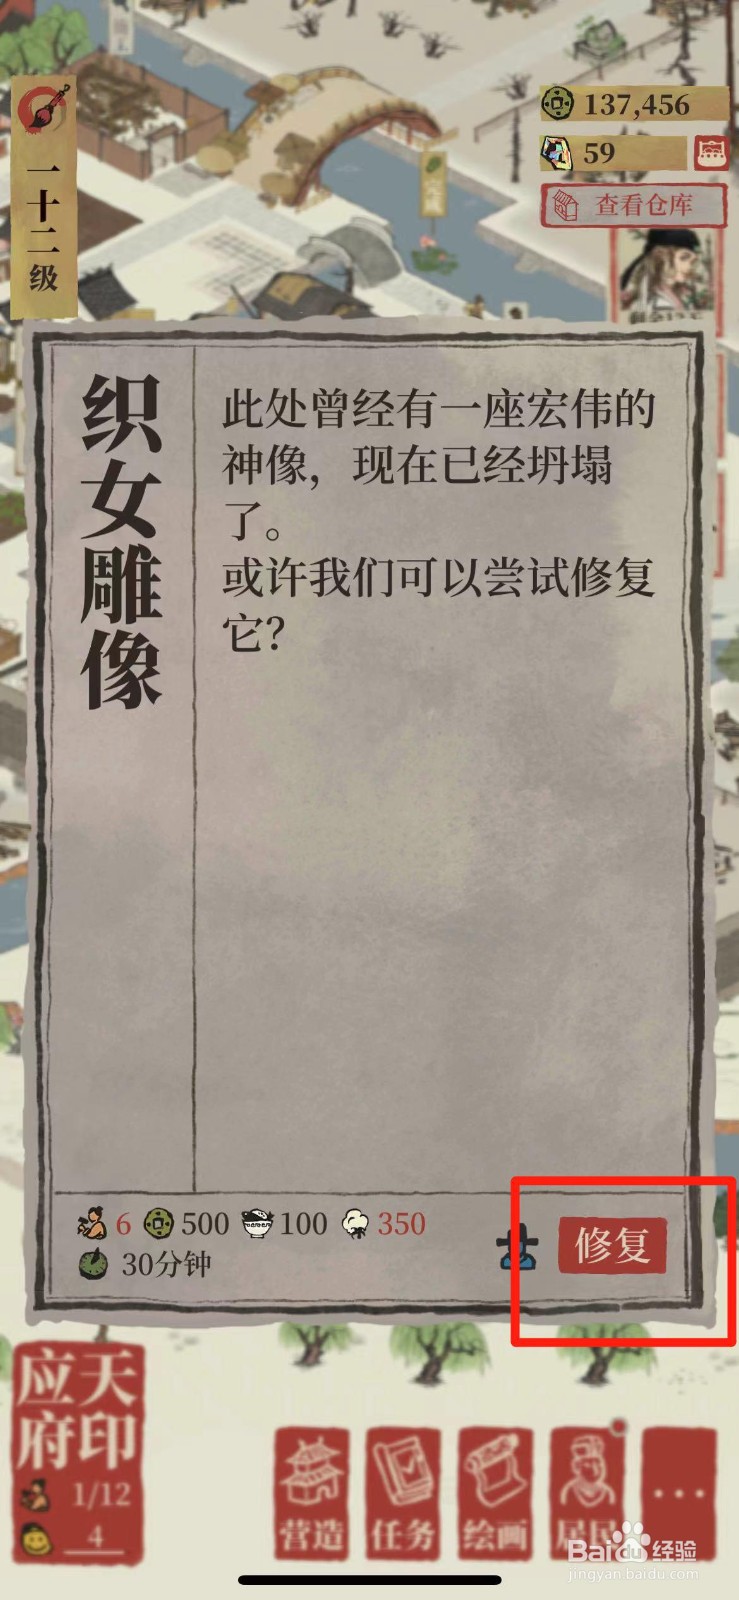 一十二级
137,456
59
查看仓库
完成
织女雕像
此处曾经有一座宏伟的
神像，现在已经坍塌
了。
或许我们可以尝试修复
它？
6 500 100 350
30分钟
修复
应天
府印
1/12
4
营造 任务 绘画 居民 ...
Baidu 经验
jingyan.baidu.com